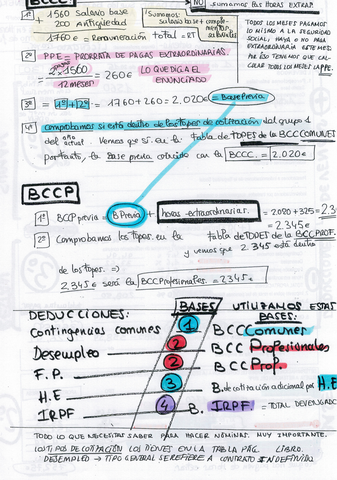 BCCC
NO sumamos las horas extraor.
1º 1560 salario base
200 antigüedad
1760 € = Remuneración total = RT
"Sumamos:
salario base + complementos
TODOS LOS MESES PAGAMOS
LO MISMO A LA SEGURIDAD
SOCIAL, HAYA O NO PAGA
EXTRAORDINARIA ESTE MES.
POR ESO TENEMOS QUE CAL-
CULAR TODOS LOS MESES LA PPE.
2º PPE = PRORRATA DE PAGAS EXTRAORDINARIAS.
= 2 x 1560 / 12 meses = 260 € LO QUE DIGA EL
ENUNCIADO
3º = 1º + 2º = 1760 + 260 = 2.020 € = Base Previa
4º comprobamos si está dentro de los topes de cotización del grupo 1
del año actual. Vemos que sí en la tabla de TOPES de la BCCOMUNES
por tanto, la Base previa coincide con la BCCC = 2.020 €
BCCP
1º BCP previa = B Previa + horas extraordinarias = 2020 + 325 =
= 2.345 €
2º Comprobamos los topes en la tabla de TOPES de la BCCPROF.
y vemos que 2.345 está dentro
de los topes ⇒
2.345 € será la BCCProfesionales = 2.345 €
DEDUCCIONES: BASES UTILIZAMOS ESTAS
BASES:
Contingencias comunes 1 BCC Comunes
Desempleo 2 BCC Profesionales
F.P. 2 BCC Prof.
H.E 3 B. de cotización adicional por H.E
IRPF 4 B. IRPF = TOTAL DEVENGADO
TODO LO QUE NECESITAS SABER PARA HACER NÓMINAS. MUY IMPORTANTE.
LOS TIPOS DE COTIZACIÓN LOS TIENES EN LA TABLA PÁG. LIBRO.
DESEMPLEO → TIPO GENERAL SE REFIERE A CONTRATO INDEFINIDO